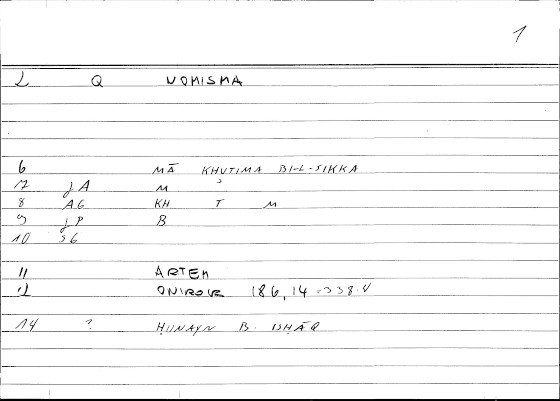 1
L Q NOMISMA
6 MĀ KHUTIMA BI-L-SIKKA
JA M
8 AG KH T M
9 JP B
10 SG
11 ARTEM
ONIROCR 186, 14 = 338.4
14 ? ḤUNAYN B. ISḤĀQ